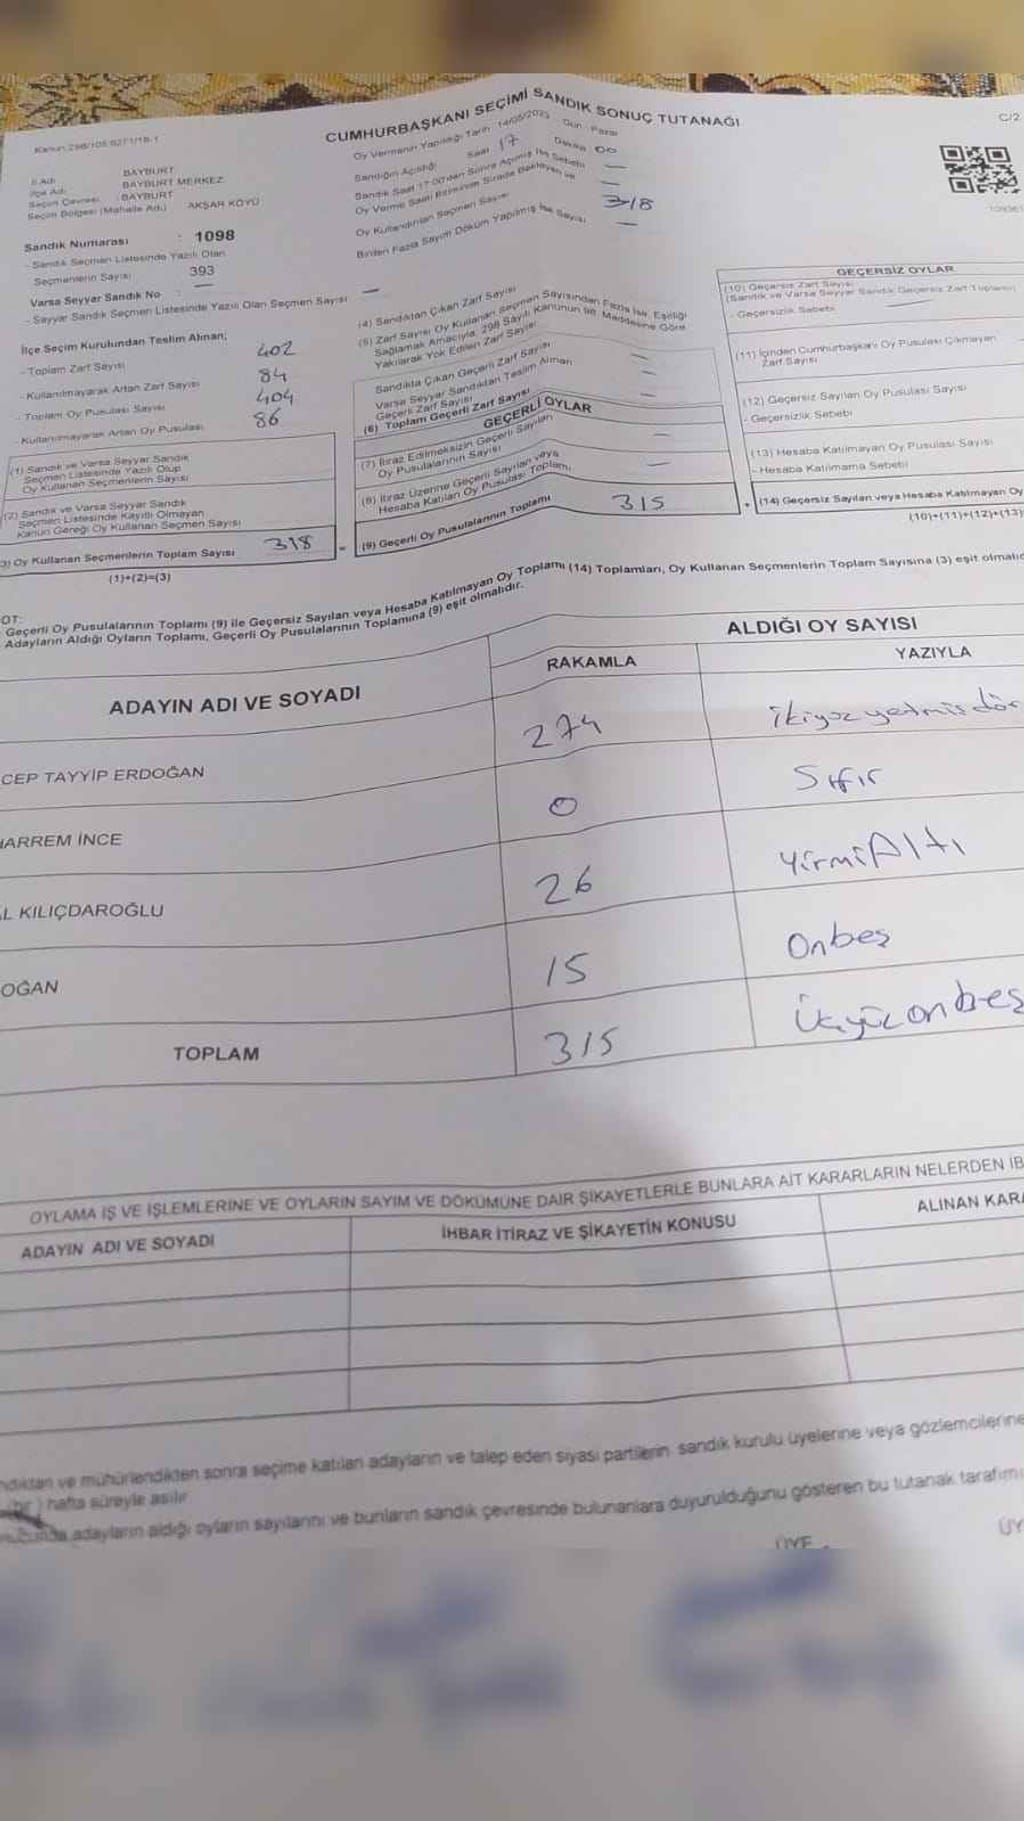 CUMHURBAŞKANI SEÇİMİ SANDIK SONUÇ TUTANAĞI
C/2
Oy Vermenin Yapıldığı Tarih: 14/05/2023 Gün: Pazar
Sandığın Açıldığı Saat 17 Dakika 00
Sandık Saat 17:00'den Sonra Açılmış İse Sebebi —
Oy Kullandırılan Seçmen Sayısı 318
Birden Fazla Sayım Döküm Yapılmış İse Sayısı —
İl Adı BAYBURT
İlçe Adı BAYBURT MERKEZ
Seçim Çevresi BAYBURT
Seçim Bölgesi (Mahalle Adı) AKŞAR KÖYÜ
Sandık Numarası : 1098
- Sandık Seçmen Listesinde Yazılı Olan
Seçmenlerin Sayısı 393
Varsa Seyyar Sandık No : —
- Seyyar Sandık Seçmen Listesinde Yazılı Olan Seçmen Sayısı —
İlçe Seçim Kurulundan Teslim Alınan;
- Toplam Zarf Sayısı 402
- Kullanılmayarak Artan Zarf Sayısı 84
- Toplam Oy Pusulası Sayısı 404
- Kullanılmayarak Artan Oy Pusulası 86
(1) Sandık ve Varsa Seyyar Sandık
Seçmen Listesinde Yazılı Olup
Oy Kullanan Seçmenlerin Sayısı
(2) Sandık ve Varsa Seyyar Sandık
Seçmen Listesinde Kayıtlı Olmayan
Kanun Gereği Oy Kullanan Seçmen Sayısı
3) Oy Kullanan Seçmenlerin Toplam Sayısı 318
(1)+(2)=(3)
(4) Sandıktan Çıkan Zarf Sayısı
(5) Zarf Sayısı Oy Kullanan Seçmen Sayısından Fazla İse, Eşitliği
Sağlamak Amacıyla, 298 Sayılı Kanunun 98. Maddesine Göre
Yakılarak Yok Edilen Zarf Sayısı
Sandıkta Çıkan Geçerli Zarf Sayısı —
Varsa Seyyar Sandıktan Teslim Alınan
Geçerli Zarf Sayısı —
(6) Toplam Geçerli Zarf Sayısı —
GEÇERLİ OYLAR
(7) İtiraz Edilmeksizin Geçerli Sayılan
Oy Pusulalarının Sayısı —
(8) İtiraz Üzerine Geçerli Sayılan veya
Hesaba Katılan Oy Pusulası Toplamı —
(9) Geçerli Oy Pusulalarının Toplamı 315
GEÇERSİZ OYLAR
(10) Geçersiz Zarf Sayısı
(Sandık ve Varsa Seyyar Sandık Geçersiz Zarf Toplamı)
- Geçersizlik Sebebi
(11) İçinden Cumhurbaşkanı Oy Pusulası Çıkmayan
Zarf Sayısı
(12) Geçersiz Sayılan Oy Pusulası Sayısı
- Geçersizlik Sebebi
(13) Hesaba Katılmayan Oy Pusulası Sayısı
- Hesaba Katılmama Sebebi
+ (14) Geçersiz Sayılan veya Hesaba Katılmayan Oy
(10)+(11)+(12)+(13)
OT:
Geçerli Oy Pusulalarının Toplamı (9) ile Geçersiz Sayılan veya Hesaba Katılmayan Oy Toplamı (14) Toplamları, Oy Kullanan Seçmenlerin Toplam Sayısına (3) eşit olmalıd
Adayların Aldığı Oyların Toplamı, Geçerli Oy Pusulalarının Toplamına (9) eşit olmalıdır.
ALDIĞI OY SAYISI
ADAYIN ADI VE SOYADI RAKAMLA YAZIYLA
CEP TAYYİP ERDOĞAN 274 ikiyüzyetmişdör
HARREM İNCE 0 Sıfır
AL KILIÇDAROĞLU 26 YirmiAltı
OĞAN 15 Onbeş
TOPLAM 315 Üçyüzonbeş
OYLAMA İŞ VE İŞLEMLERİNE VE OYLARIN SAYIM VE DÖKÜMÜNE DAİR ŞİKAYETLERLE BUNLARA AİT KARARLARIN NELERDEN İB
ADAYIN ADI VE SOYADI İHBAR İTİRAZ VE ŞİKAYETİN KONUSU ALINAN KARA
ndıktan ve mühürlendikten sonra seçime katılan adayların ve talep eden siyasi partilerin sandık kurulu üyelerine veya gözlemcilerine
(bir) hafta süreyle asılır
adayların aldığı oyların sayılarını ve bunların sandık çevresinde bulunanlara duyurulduğunu gösteren bu tutanak tarafımı
ÜYE
ÜY